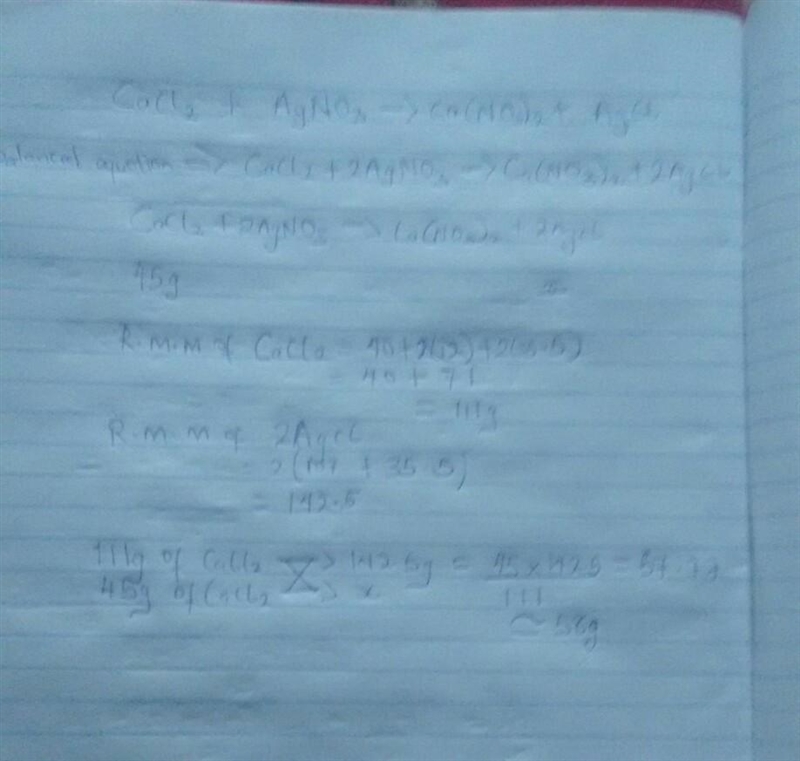 CaCl2 + AgNO3 -> Ca(NO3)2 + AgCl
balanced equation => CaCl2 + 2AgNO3 -> Ca(NO3)2 + 2AgCl
CaCl2 + 2AgNO3 -> Ca(NO3)2 + 2AgCl
45g
R.M.M of CaCl2 = 40+2(35.5)
= 40 + 71
= 111g
R.M.M of 2AgCl
2( + 35.5)
= 142.5
111g of CaCl2 -> 142.5g = 45 x 142.5 =
45g of CaCl2 -> x 111
≃ 58g